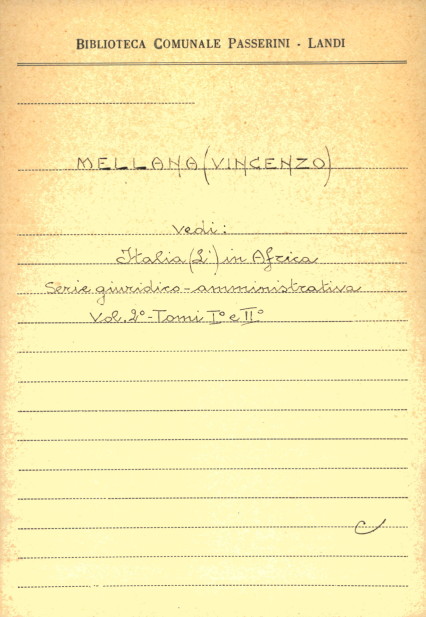 BIBLIOTECA COMUNALE PASSERINI - LANDI
MELLANA (VINCENZO)
Vedi:
Italia (L') in Africa
Serie giuridico-amministrativa
Vol. 2° - Tomi I° e II°
C